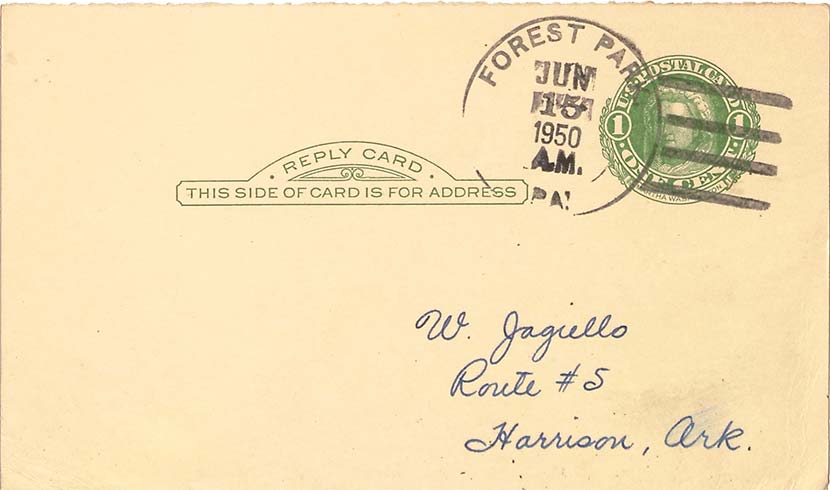 FOREST PARK
JUN
15
1950
A.M.
PA.
U.S. POSTAL CARD
1 1
ONE CENT
MARTHA WASHINGTON
REPLY CARD
THIS SIDE OF CARD IS FOR ADDRESS
W. Jagiello
Route #5
Harrison, Ark.